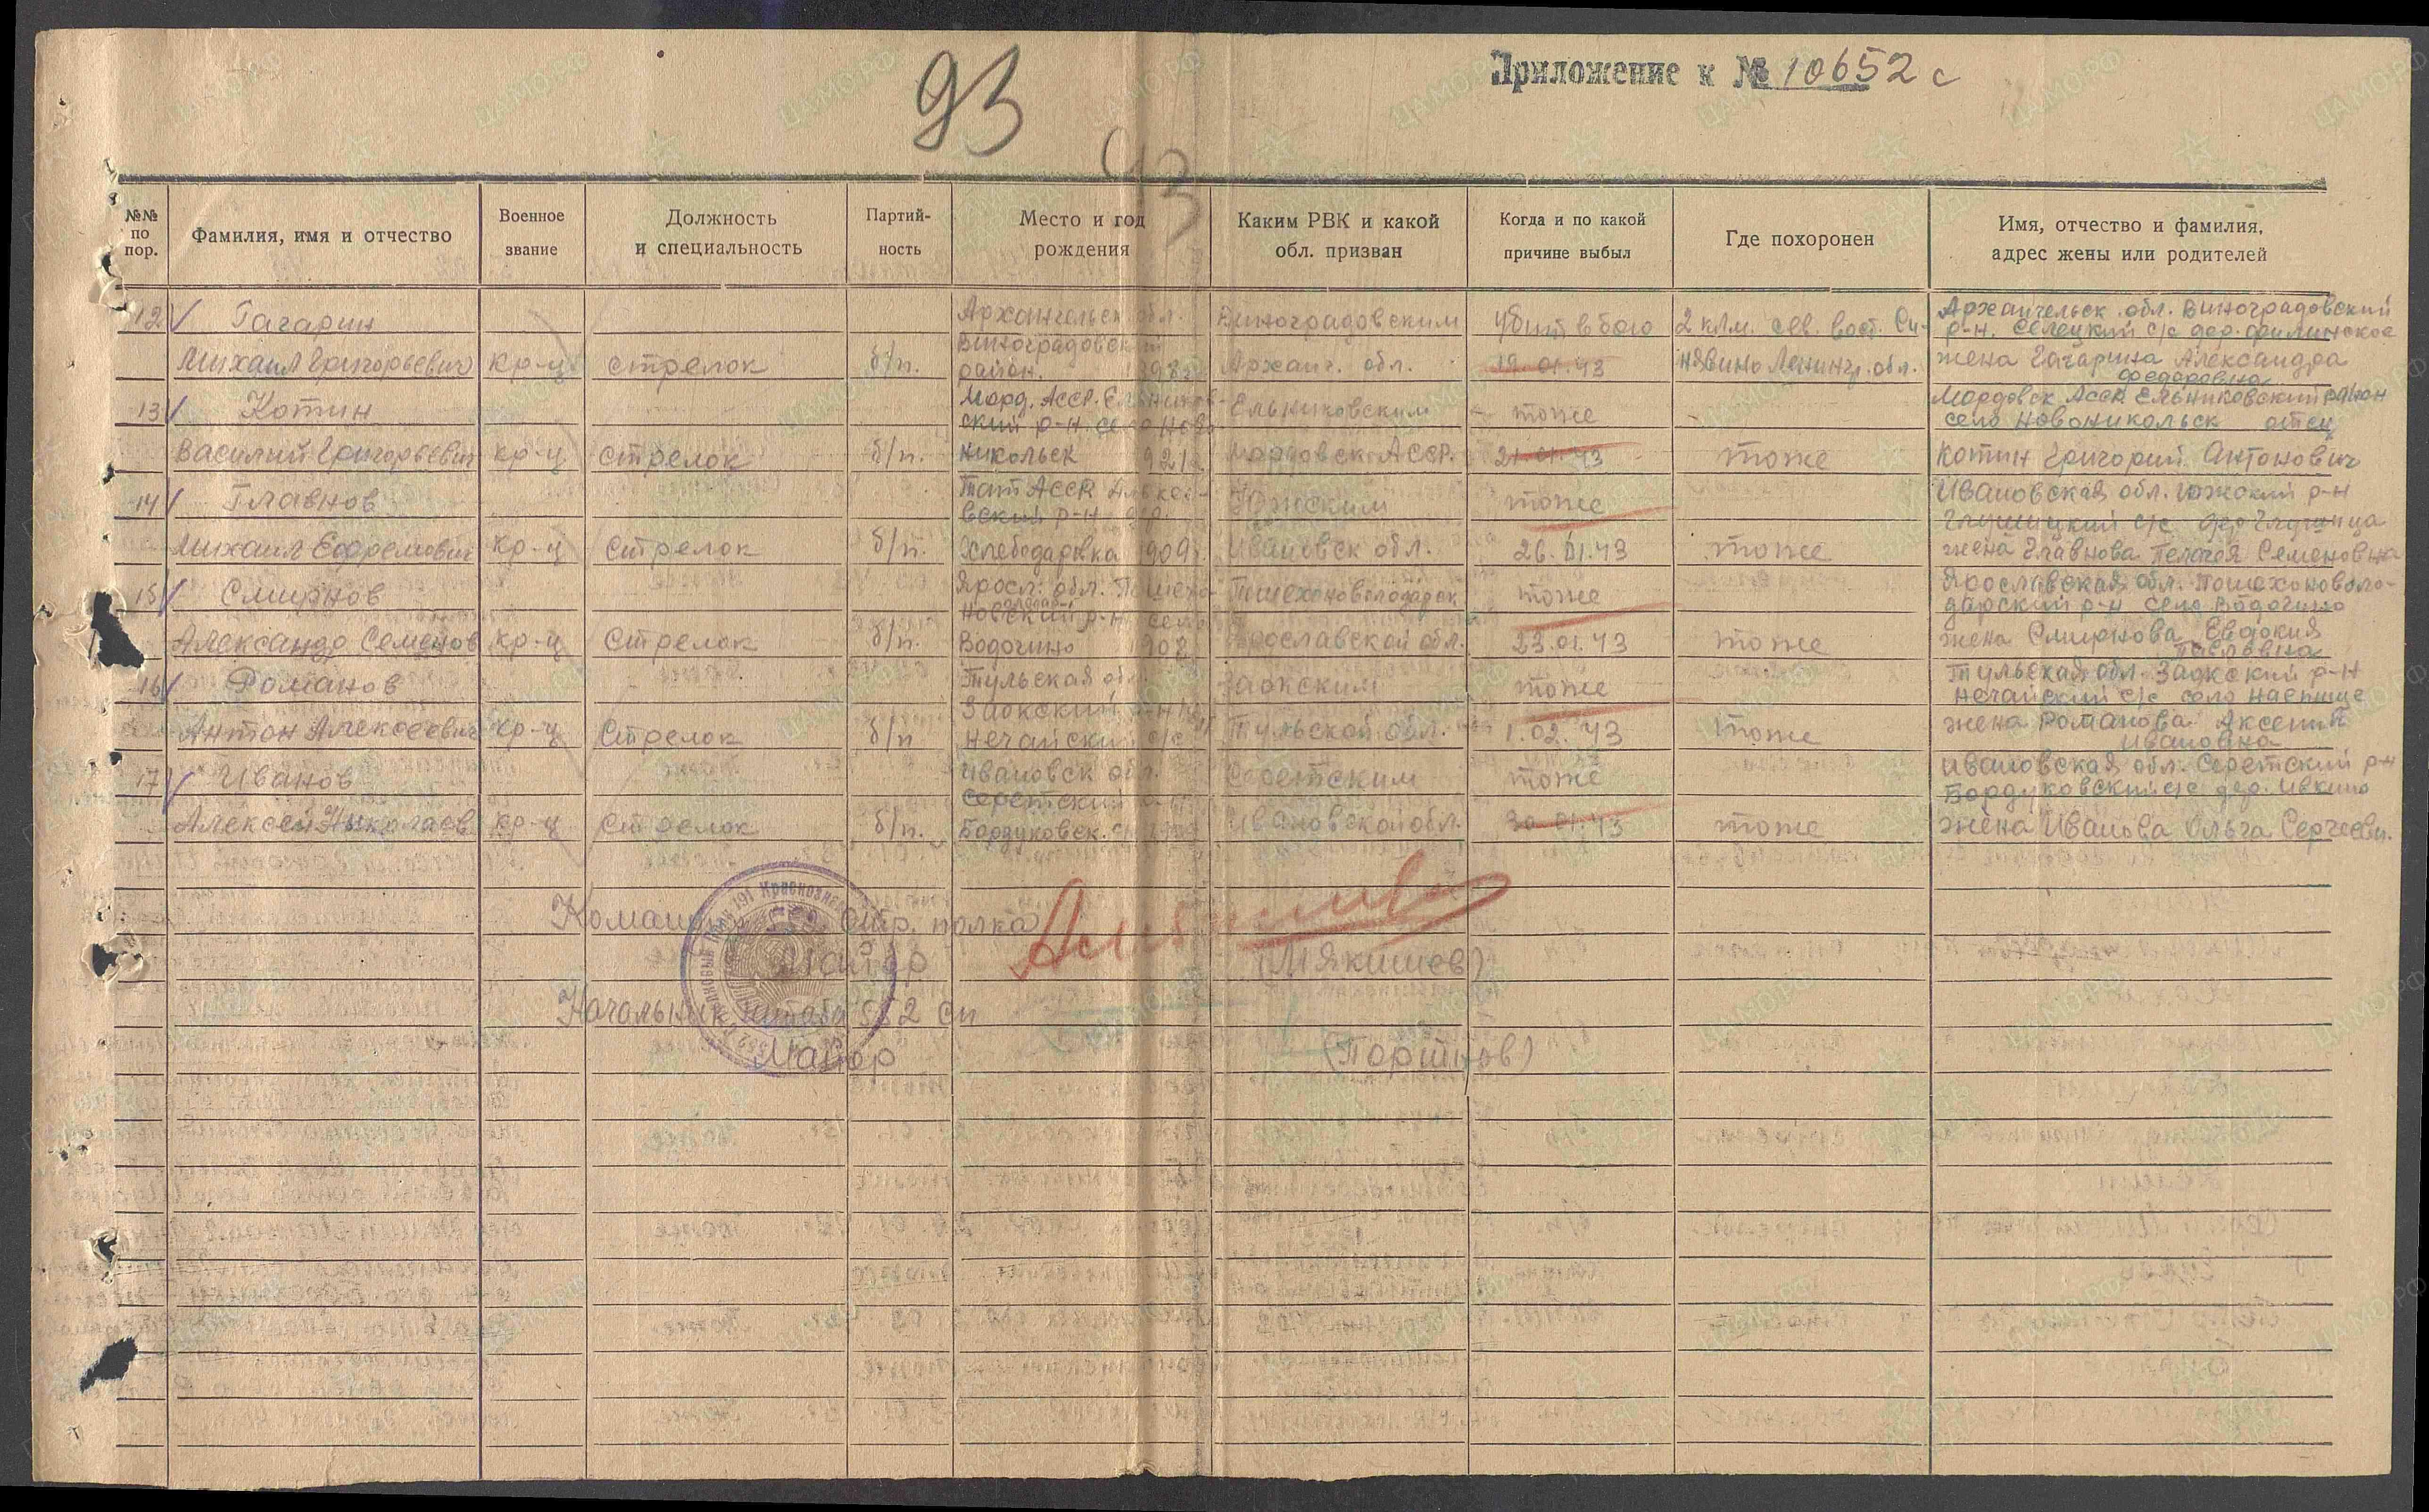 93
Приложение к № 10652 с
93
№№ по пор.
Фамилия, имя и отчество
Военное звание
Должность и специальность
Партий-ность
Место и год рождения
Каким РВК и какой обл. призван
Когда и по какой причине выбыл
Где похоронен
Имя, отчество и фамилия, адрес жены или родителей
12 Гагарин Архангельск обл. Виноградовским убит в бою 2 клм. сев. вост. Си- Архангельск. обл. Виноградовский
Виноградовский р-н. Селецкий с/с дер. Филинское
Михаил Григорьевич кр-ц стрелок б/п. район. 1898 Арханг. обл. 19.01.43 нявино Ленингр. обл. жена Гагарина Александра
Федоровна
13 Котин Морд. АССР. Ельников- Ельниковским тоже Мордовск АССР Ельниковский район
ский р-н. село Ново- село Новоникольск отец
Василий Григорьевич кр-ц стрелок б/п. Никольск 921 Мордовск АССР. 21.01.43 тоже Котин Григорий Антонович
14 Главнов Тат АССР Южским тоже Ивановская обл. Южский р-н
вский р-н дер. Глушицкий с/с Глушица
Михаил Ефремович кр-ц Стрелок б/п. Хлебодаровка 909 Ивановск обл. 26.01.43 тоже жена Главнова Пелагея Семеновна
15 Смирнов Яросл. обл. Пошехо- Пошехоноволодарск тоже Ярославская обл. Пошехоноволо-
новский р-н село дарский р-н село Водогино
Александр Семенов кр-ц Стрелок б/п. Водогино 908 Ярославской обл. 23.01.43 тоже жена Смирнова Евдокия
Павловна
16 Романов Тульская обл. Заокским тоже Тульская обл. Заокский р-н
Заокский р-н Нечайский с/с село
Антон Алексеевич кр-ц Стрелок б/п Нечайский с/с Тульской обл. 1.02.43 тоже жена Романова Аксения
Ивановна
17 Иванов Ивановск обл. Середским тоже Ивановская обл. Середский р-н
Середский р-н Бордуковский с/с дер. Ивкино
Алексей Николаев кр-ц Стрелок б/п. Бордуковск. с/с Ивановской обл. 30.01.43 тоже жена Иванова Ольга Сергеевн.
Командир 552 Стр. полка
Майор (Мякишев)
Начальник штаба 552 сп
Майор (Портнов)